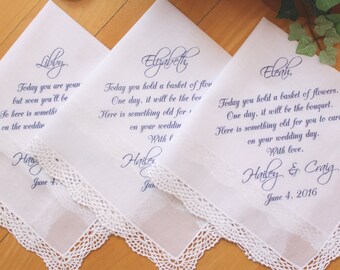 Libby,
Today you are your
but soon you'll be
So here is something
on the wedding
Hailey
June 4,
Elizabeth,
Today you hold a basket of flow
One day, it will be the bouquet.
Here is something old for you to
on your wedding day.
With love,
Hailey
Eleah,
Today you hold a basket of flowers.
One day, it will be the bouquet.
Here is something old for you to car
on your wedding day.
With love,
Hailey & Craig
June 4, 2016